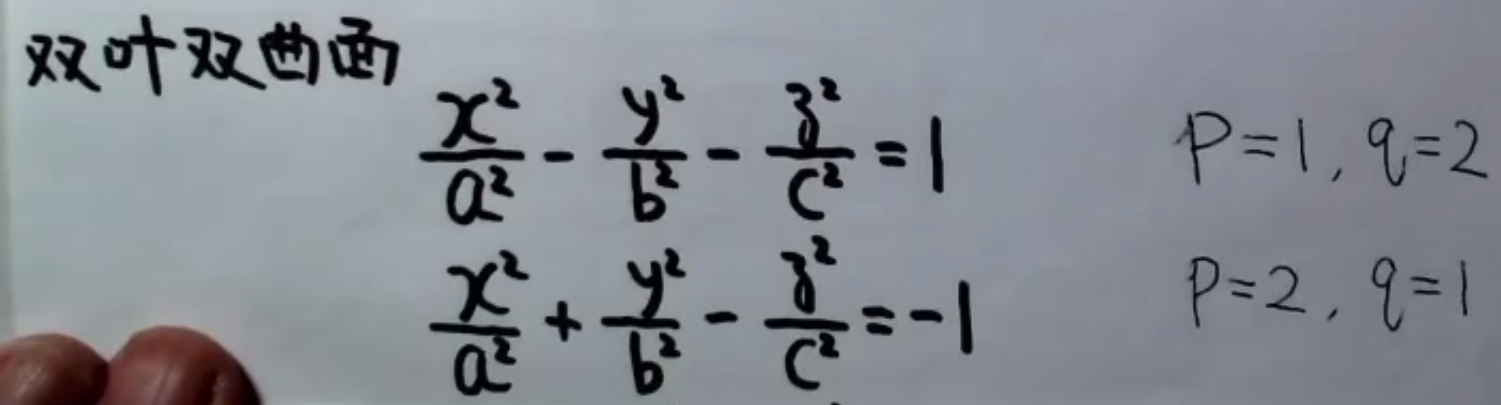 双叶双曲面
x²/a² - y²/b² - z²/c² = 1 p=1, q=2
x²/a² + y²/b² - z²/c² = -1 p=2, q=1